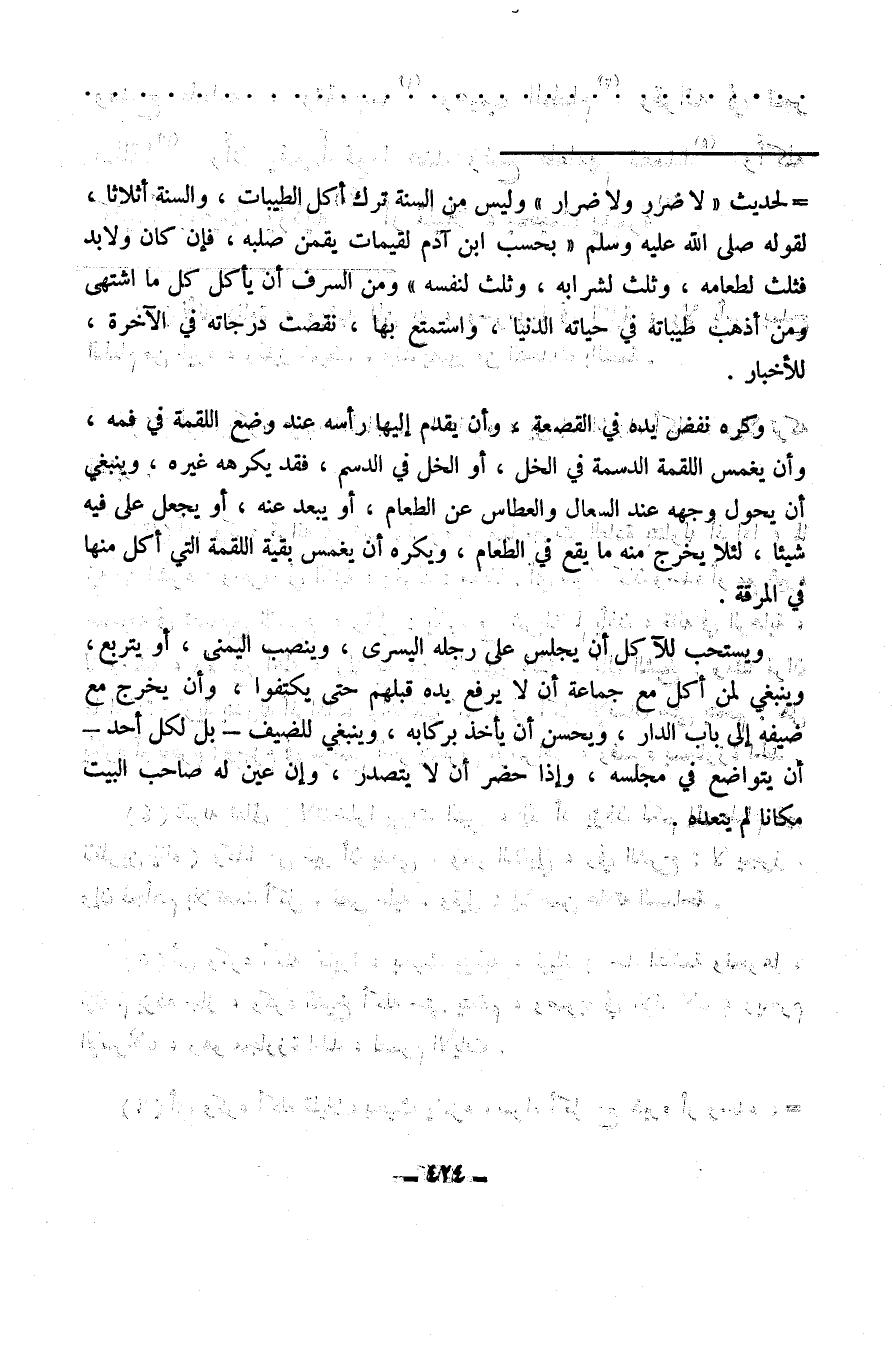 = لحديث « لا ضرر ولا ضرار » وليس من السنة ترك أكل الطيبات ، والسنة أثلاثا ،
لقوله صلى الله عليه وسلم « بحسب ابن آدم لقيمات يقمن صلبه ، فإن كان ولابد
فثلث لطعامه ، وثلث لشرابه ، وثلث لنفسه » ومن السرف أن يأكل كل ما اشتهى
ومن أذهب طيباته في حياته الدنيا ، واستمتع بها ، نقصت درجاته في الآخرة ،
للأخبار .
وكره نفض يده في القصعة ، وأن يقدم إليها رأسه عند وضع اللقمة في فمه ،
وأن يغمس اللقمة الدسمة في الخل ، أو الخل في الدسم ، فقد يكرهه غيره ، وينبغي
أن يحول وجهه عند السعال والعطاس عن الطعام ، أو يبعد عنه ، أو يجعل على فيه
شيئا ، لئلا يخرج منه ما يقع في الطعام ، ويكره أن يغمس بقية اللقمة التي أكل منها
في المرقة .
ويستحب للآكل أن يجلس على رجله اليسرى ، وينصب اليمنى ، أو يتربع ،
وينبغي لمن أكل مع جماعة أن لا يرفع يده قبلهم حتى يكتفوا ، وأن يخرج مع
ضيفه إلى باب الدار ، ويحسن أن يأخذ بركابه ، وينبغي للضيف – بل لكل أحد –
أن يتواضع في مجلسه ، وإذا حضر أن لا يتصدر ، وإن عين له صاحب البيت
مكانا لم يتعده .
– ٤٢٤ –